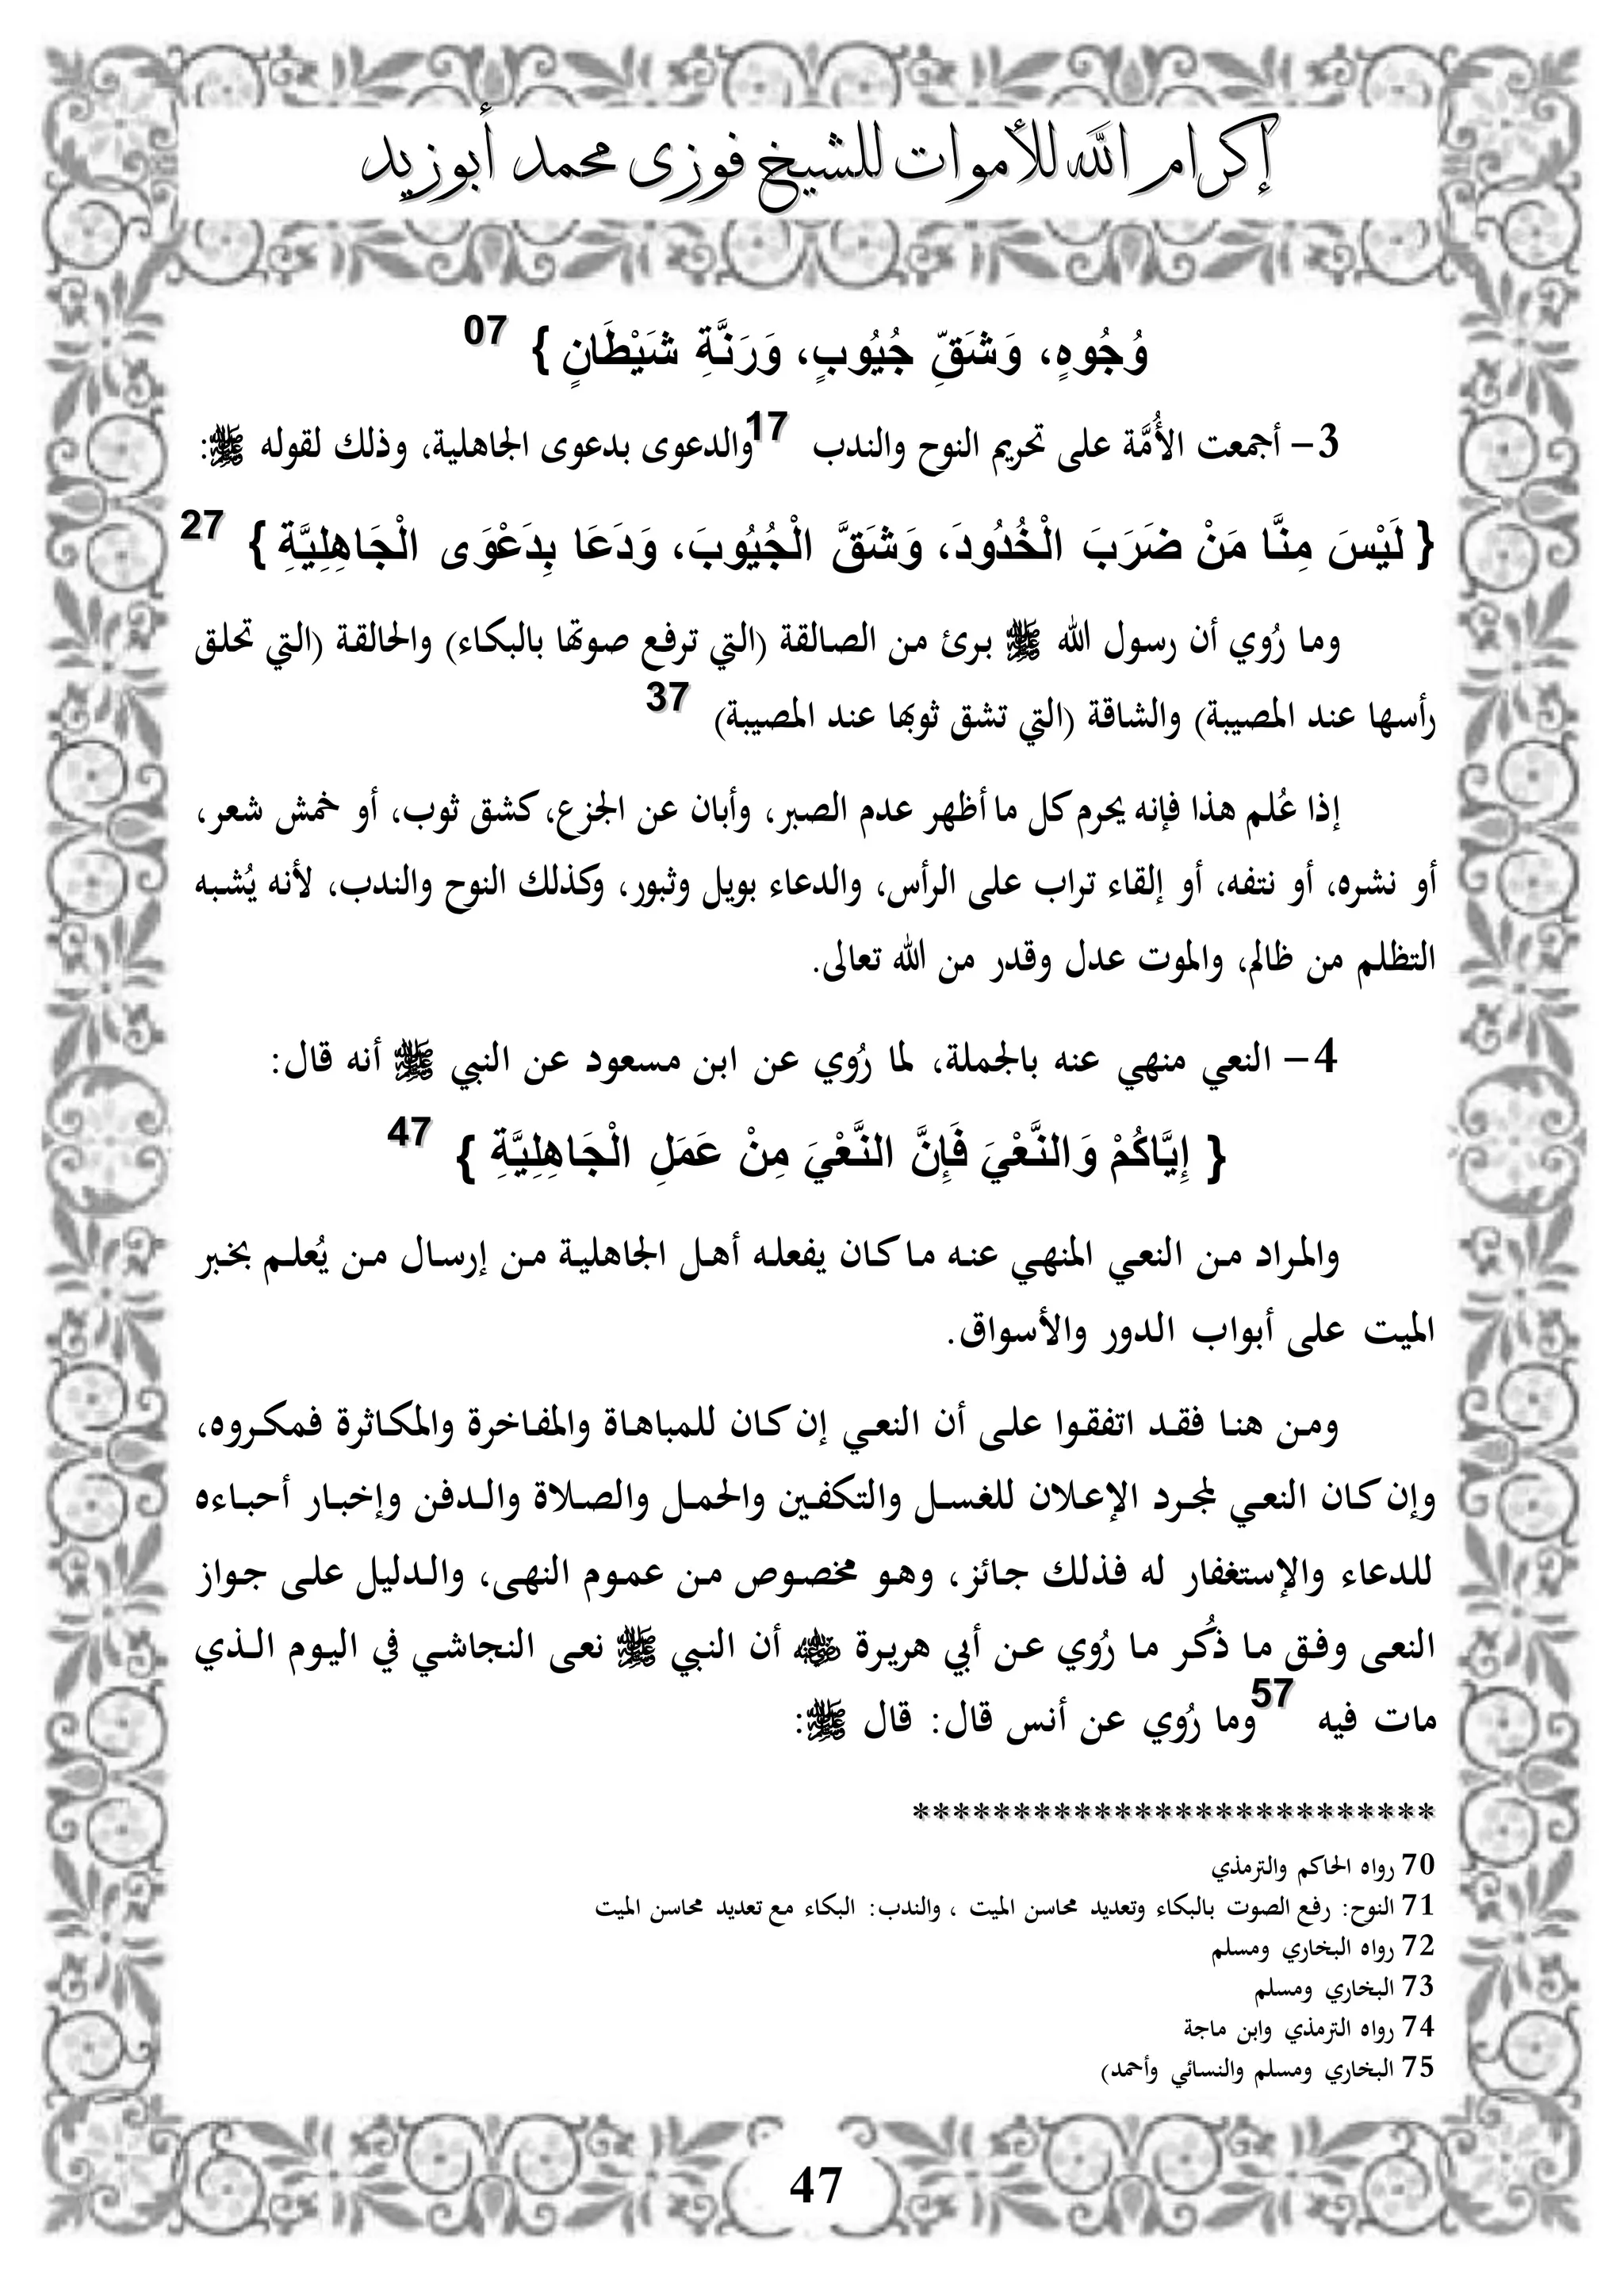 إكرام الله للأموات للشيخ فوزى محمد أبوزيد
وُجُوهٍ، وَشَقِّ جُيُوبٍ، وَرَنَّةِ شَيْطَانٍ } 07
3- أجمعت الأُمَّة على تحريم النوح والندب 17 والدعوى بدعوى الجاهلية، وذلك لقوله ﷺ:
{ لَيْسَ مِنَّا مَنْ ضَرَبَ الْخُدُودَ، وَشَقَّ الْجُيُوبَ، وَدَعَا بِدَعْوَى الْجَاهِلِيَّةِ } 27
وما رُوي أن رسول الله ﷺ برئ من الصالقة (التي ترفع صوتها بالبكاء) والحالقة (التي تحلق
رأسها عند المصيبة) والشاقة (التي تشق ثوبها عند المصيبة) 37
إذا عُلم هذا فإنه يحرم كل ما أظهر عدم الصبر، وأبان عن الجزع، كشق ثوب، أو خمش شعر،
أو نشره، أو نتفه، أو إلقاء تراب على الرأس، والدعاء بويل وثبور، وكذلك النوح والندب، لأنه يُشبه
التظلم من ظالم، والموت عدل وقدر من الله تعالى.
4- النعي منهي عنه بالجملة، لما رُوي عن ابن مسعود عن النبي ﷺ أنه قال:
{ إِيَّاكُمْ وَالنَّعْيَ فَإِنَّ النَّعْيَ مِنْ عَمَلِ الْجَاهِلِيَّةِ } 47
والمراد من النعي المنهي عنه ما كان يفعله أهل الجاهلية من إرسال من يُعلم بخبر
الميت على أبواب الدور والأسواق.
ومن هنا فقد اتفقوا على أن النعي إن كان للمباهاة والمفاخرة والمكاثرة فمكروه،
وإن كان النعي لمجرد الإعلان للغسل والتكفين والحمل والصلاة والدفن وإخبار أحباءه
للدعاء والإستغفار له فذلك جائز، وهو مخصوص من عموم النهى، والدليل على جواز
النعى وفق ما ذُكر ما رُوي عن أبي هريرة ﷺ أن النبي ﷺ نعى النجاشي في اليوم الذي
مات فيه 57 وما رُوي عن أنس قال: قال ﷺ:
**************************
70 رواه الحاكم والترمذي
71 النوح: رفع الصوت بالبكاء وتعديد محاسن الميت ، والندب: البكاء مع تعديد محاسن الميت
72 رواه البخاري ومسلم
73 البخاري ومسلم
74 رواه الترمذي وابن ماجة
75 البخاري ومسلم والنسائي وأحمد)
47